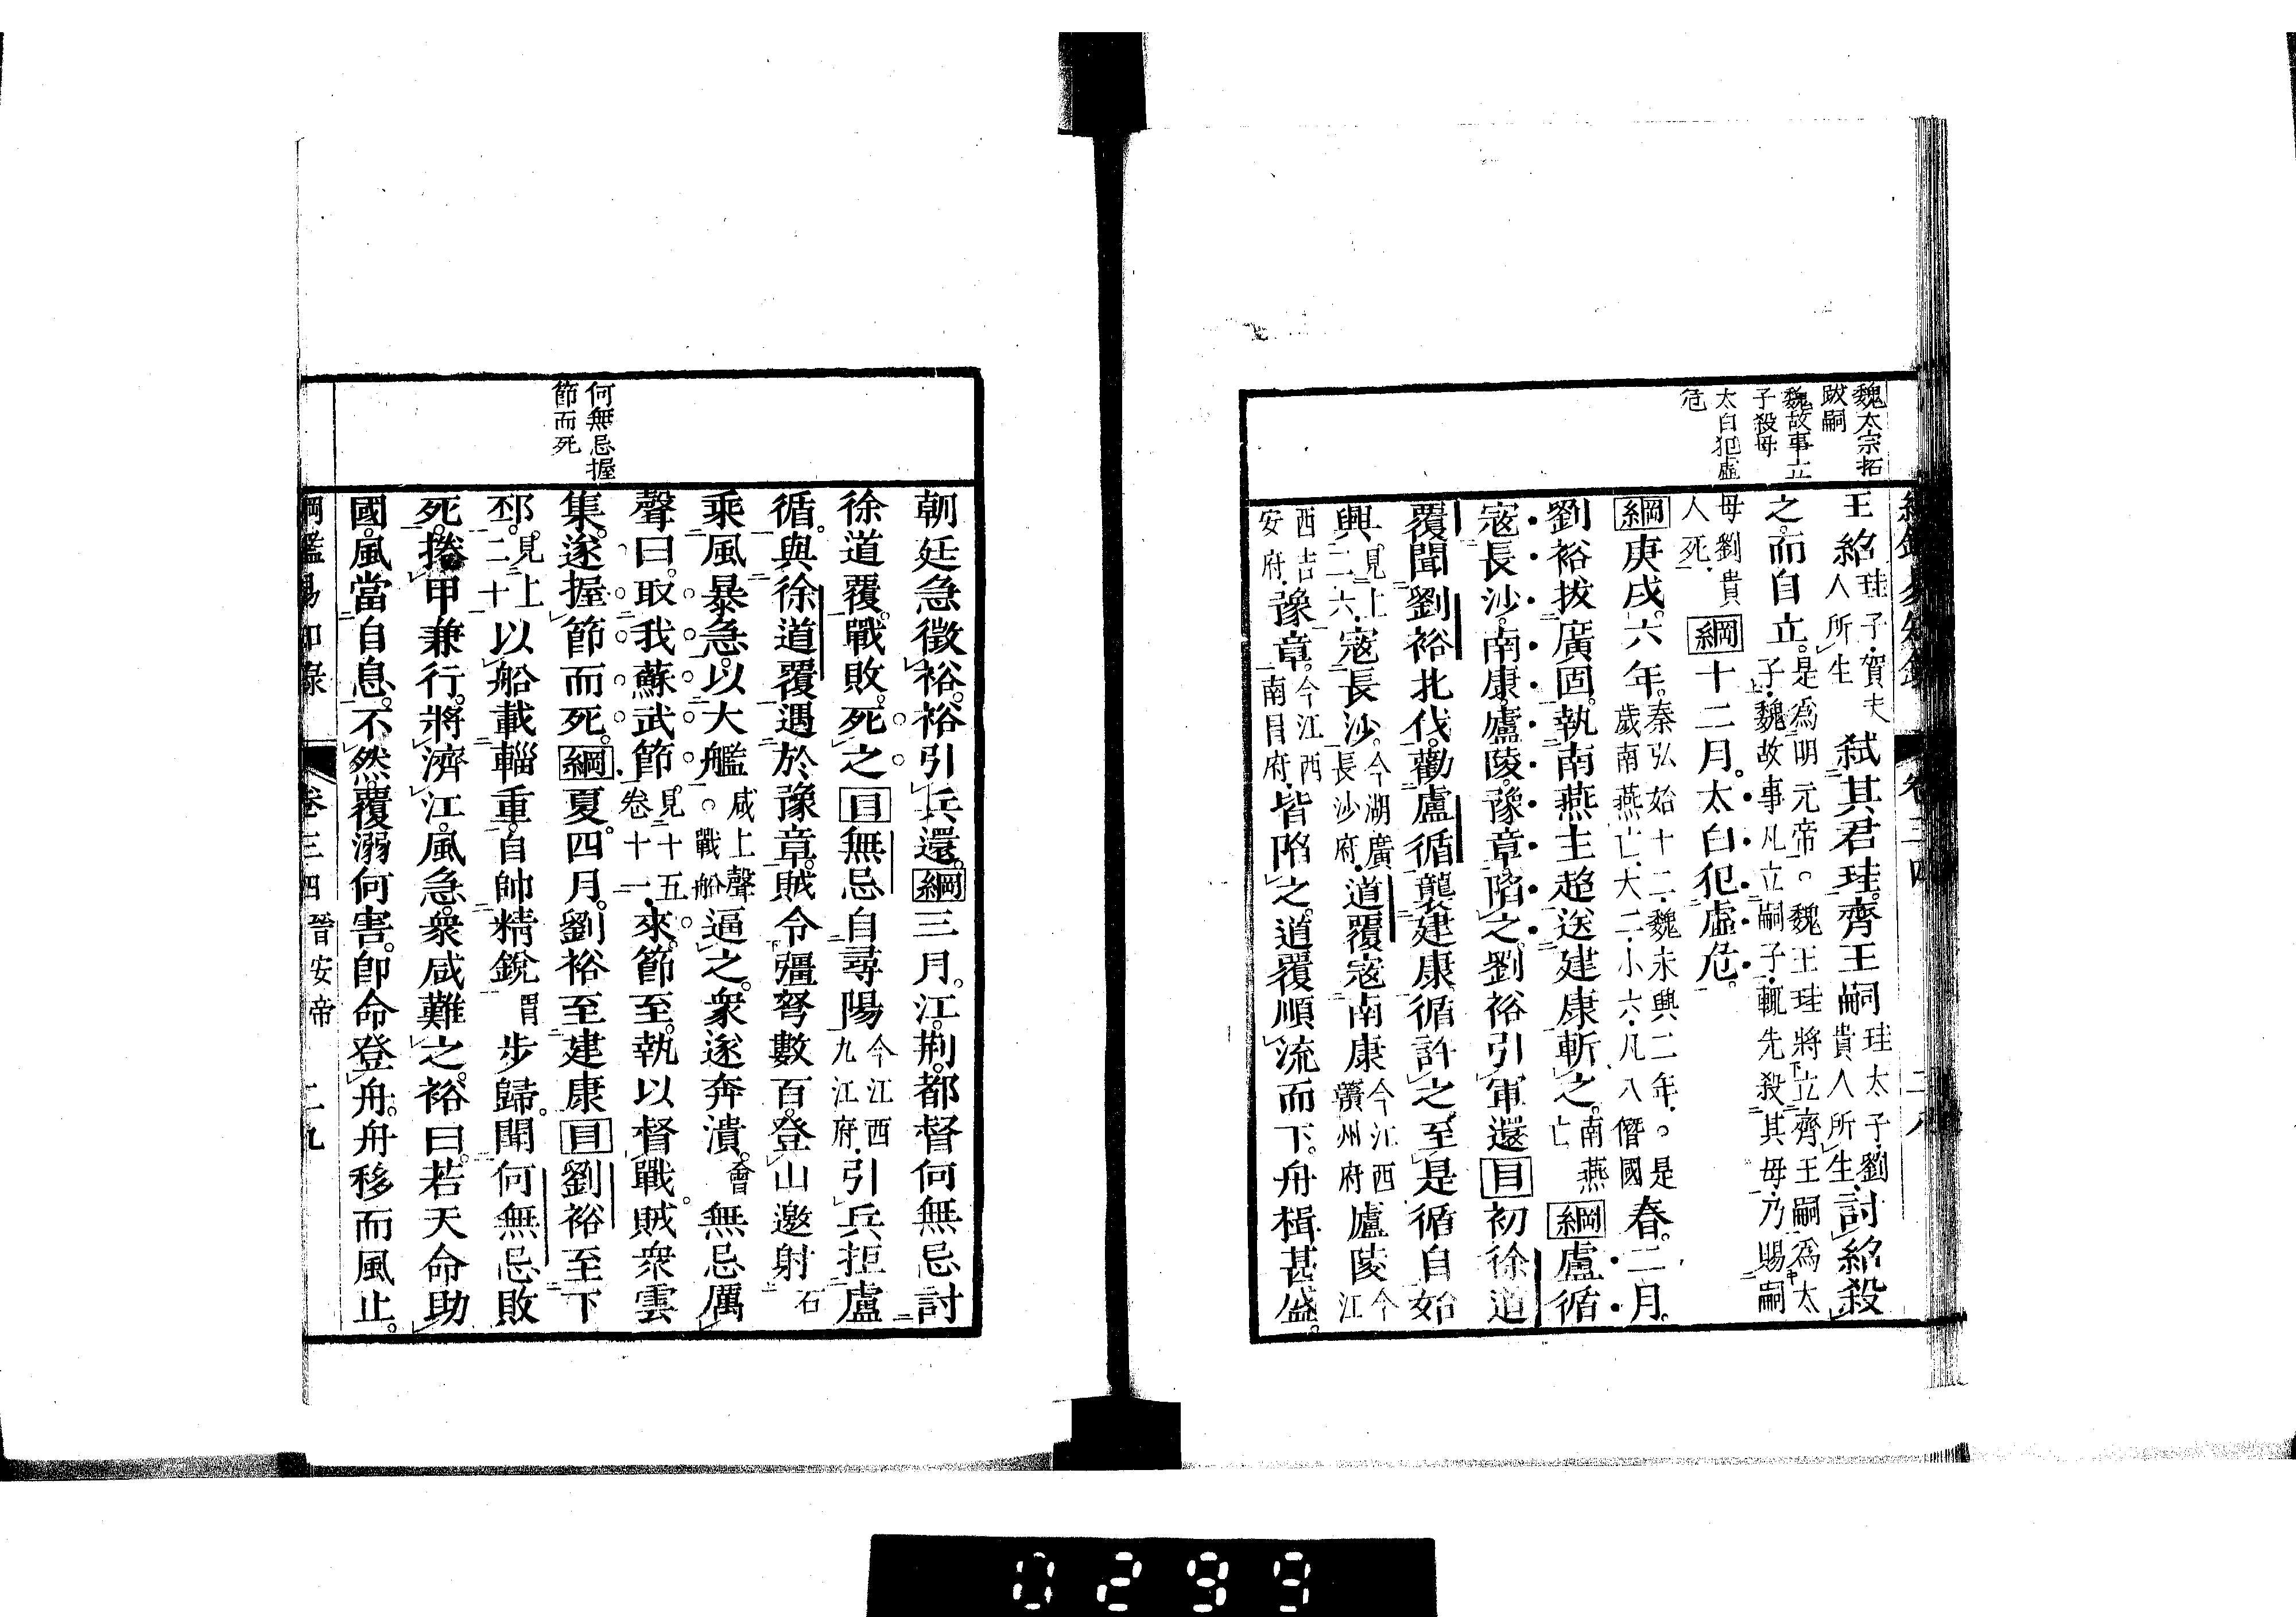 綱鑑易知錄 卷三四 二八
魏太宗拓
跋嗣
魏故事立
子殺母
太白犯虛
危
王紹珪子賀夫人所生弑其君珪。齊王嗣珪太子劉貴人所生討紹殺
之。而自立。是爲明元帝。○魏王珪將立齊王嗣爲太子魏故事凡立嗣子輒先殺其母乃賜嗣
母劉貴人死綱十二月。太白犯虛危。
綱庚戌。六年。秦弘始十二魏永興二年○是歲南燕亡大二小六凡八僭國春。二月。
劉裕拔廣固。執南燕主超送建康斬之。南燕亡綱盧循
寇長沙。南康。廬陵。豫章。陷之。劉裕引軍還目初徐道
覆聞劉裕北伐。勸盧循襲建康循許之。至是循自始
興。見上二六寇長沙。今湖廣長沙府道覆寇南康今江西贛州府廬陵今江
西吉安府豫章。今江西南昌府皆陷之。道覆順流而下。舟楫甚盛。
何無忌握
節而死
朝廷急徵裕。裕引兵還。綱三月。江。荆。都督何無忌討
徐道覆。戰敗。死之目無忌自尋陽今江西九江府引兵拒盧
循。與徐道覆遇於豫章。賊令彊弩數百。登山邀射石
乘風暴急。以大艦咸上聲○戰船逼之。衆遂奔潰。會無忌厲
聲曰。取我蘇武節。見十五卷十一來。節至。執以督戰。賊衆雲
集。遂握節而死。綱夏。四月。劉裕至建康目劉裕至下
邳。見上二十以船載輜重。自帥精銳胃步歸。聞何無忌敗
死。捲甲兼行。將濟江。風急。衆咸難之。裕曰。若天命助
國。風當自息。不然。覆溺何害。卽命登舟。舟移而風止。
綱鑑易知錄 卷三四 晉安帝 二九
0299